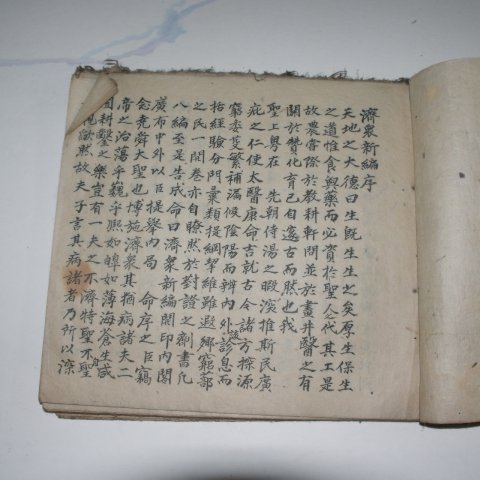 濟衆新編序
天地之大德曰生旣生之矣厚生保生
之道惟食與藥而必資於聖人代其工是
故農嘗際於敎耕軒問並於畫井醫之有
關於贊化育已自邃古而然也我
聖上粤在 先朝侍湯之暇濱推斯民廣
疪之仁使太醫康命吉就古今諸方探源
窮委芟繁補漏候陰陽而辨內外診息而
括經驗分門彙類提綱挈維雖遐鄕窮蔀
之民一開卷亦自瞭然於對證之劑書凡
八編至是告成命曰濟衆新編開印內閣
廣布中外以臣提擧內局 命序之臣竊
念堯舜大聖也博施濟衆其猶病諸夫二
帝之治蕩乎巍乎熙如皥如薄海蒼生咸
囿耕鑿之樂豈有一夫之不濟特聖不聖
視欿然故夫子言其病諸者乃所以深